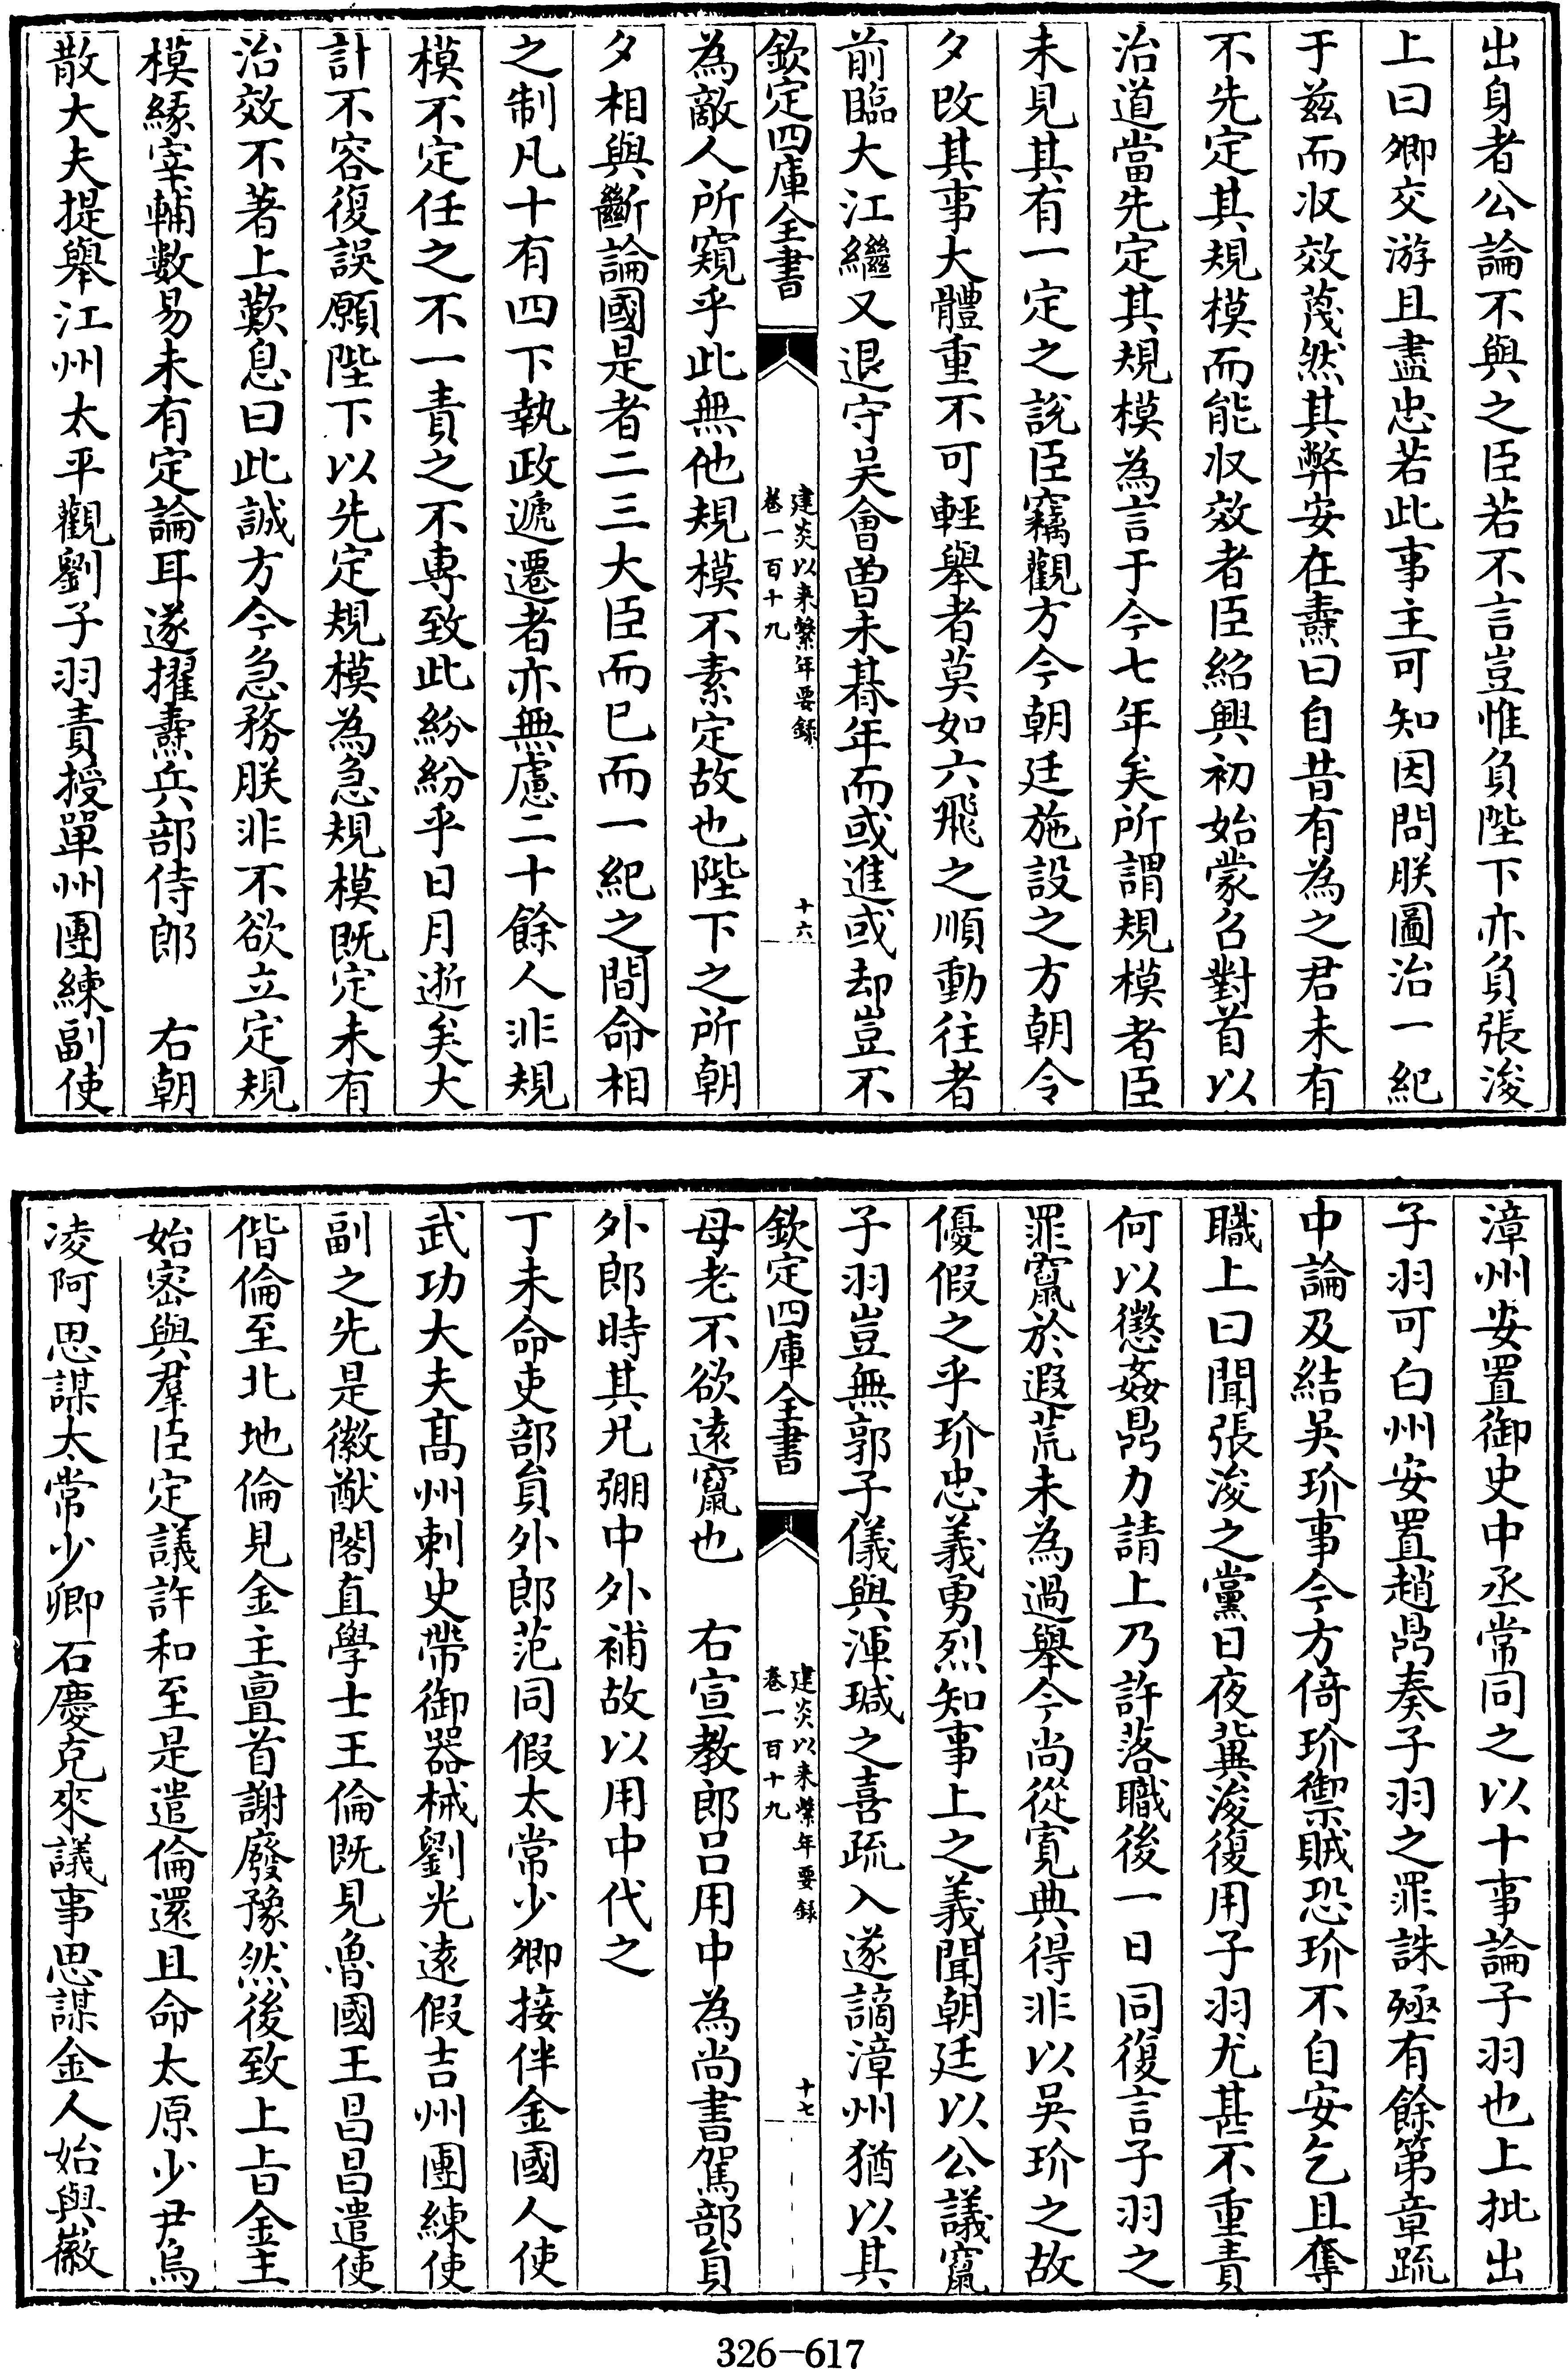 出身者公論不與之臣若不言豈惟負陛下亦負張浚
上曰卿交游且盡忠若此事主可知因問朕圖治一紀
于兹而收效蔑然其弊安在燾曰自昔有為之君未有
不先定其規模而能收效者臣紹興初始蒙召對首以
治道當先定其規模為言于今七年矣所謂規模者臣
未見其有一定之說臣竊觀方今朝廷施設之方朝令
夕改其事大體重不可輕舉者莫如六飛之順動往者
前臨大江繼又退守吳會曾未朞年而或進或却豈不
欽定四庫全書
建炎以来繫年要録
卷一百十九
十六
為敵人所窺乎此無他規模不素定故也陛下之所朝
夕相與斷論國是者二三大臣而已而一紀之間命相
之制凡十有四下執政遞遷者亦無慮二十餘人非規
模不定任之不一責之不專致此紛紛乎日月逝矣大
計不容復誤願陛下以先定規模為急規模既定未有
治效不著上歎息曰此誠方今急務朕非不欲立定規
模緣宰輔數易未有定論耳遂擢燾兵部侍郎　右朝
散大夫提舉江州太平觀劉子羽責授單州團練副使
漳州安置御史中丞常同之以十事論子羽也上批出
子羽可白州安置趙鼎奏子羽之罪誅殛有餘第章疏
中論及結吳玠事今方倚玠禦賊恐玠不自安乞且奪
職上曰聞張浚之黨日夜冀浚復用子羽尤甚不重責
何以懲姦鼎力請上乃許落職後一日同復言子羽之
罪竄於遐荒未為過舉今尚從寬典得非以吳玠之故
優假之乎玠忠義勇烈知事上之義聞朝廷以公議竄
子羽豈無郭子儀與渾瑊之喜疏入遂謫漳州猶以其
欽定四庫全書
建炎以来繫年要録
卷一百十九
十七
母老不欲遠竄也　右宣教郎吕用中為尚書駕部員
外郎時其兄弸中外補故以用中代之
丁未命吏部員外郎范同假太常少卿接伴金國人使
武功大夫高州刺史帶御器械劉光遠假吉州團練使
副之先是徽猷閣直學士王倫既見魯國王昌昌遣使
偕倫至北地倫見金主亶首謝廢豫然後致上旨金主
始密與羣臣定議許和至是遣倫還且命太原少尹烏
凌阿思謀太常少卿石慶克來議事思謀金人始與徽
326-617